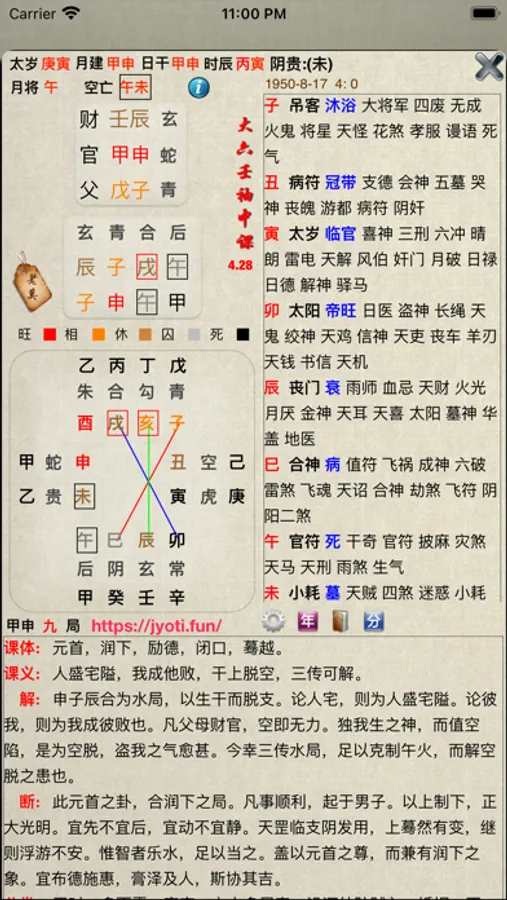 Carrier 11:00 PM
太岁 庚寅 月建 甲申 日干 甲申 时辰 丙寅 阴贵:(未)
月将 午 空亡 午未
1950-8-17 4: 0
财 壬辰 玄
官 甲申 蛇
父 戊子 青
玄 青 合 后
辰 子 戌 午
子 申 午 甲
大六壬袖中课
4.28
老黄
旺 相 休 囚 死
乙 丙 丁 戊
朱 合 勾 青
酉 戌 亥 子
甲 蛇 申 丑 空 己
乙 贵 未 寅 虎 庚
午 巳 辰 卯
后 阴 玄 常
甲 癸 壬 辛
子 吊客 沐浴 大将军 四废 无成
火鬼 将星 天怪 花煞 孝服 谩语 死
气
丑 病符 冠带 支德 会神 五墓 哭
神 丧魄 游都 病符 阴奸
寅 太岁 临官 喜神 三刑 六冲 晴
朗 雷电 天解 风伯 奸门 月破 日禄
日德 解神 驿马
卯 太阳 帝旺 日医 盗神 长绳 天
鬼 绞神 天鸡 信神 天吏 丧车 羊刃
天钱 书信 天机
辰 丧门 衰 雨师 血忌 天财 火光
月厌 金神 天耳 天喜 太阳 墓神 华
盖 地医
巳 合神 病 值符 飞祸 成神 六破
雷煞 飞魂 天诏 合神 劫煞 飞符 阴
阳二煞
午 官符 死 干奇 官符 披麻 灾煞
天马 天刑 雨煞 生气
未 小耗 墓 天贼 四煞 迷惑 小耗
甲申 九 局 https://jyoti.fun/
年 分
课体: 元首，润下，励德，闭口，蓦越。
课义: 人盛宅隘，我成他败，干上脱空，三传可解。
解: 申子辰合为水局，以生干而脱支。论人宅，则为人盛宅隘。论彼
我，则为我成彼败也。凡父母财官，空即无力。独我生之神，而值空
陷，是为空脱，盗我之气愈甚。今幸三传水局，足以克制午火，而解空
脱之患也。
断: 此元首之卦，合润下之局。凡事顺利，起于男子。以上制下，正
大光明。宜先不宜后，宜动不宜静。天罡临支阴发用，上蓦然有变，继
则浮游不安。惟智者乐水，足以当之。盖以元首之尊，而兼有润下之
象。宜布德施惠，膏泽及人，斯协其吉。